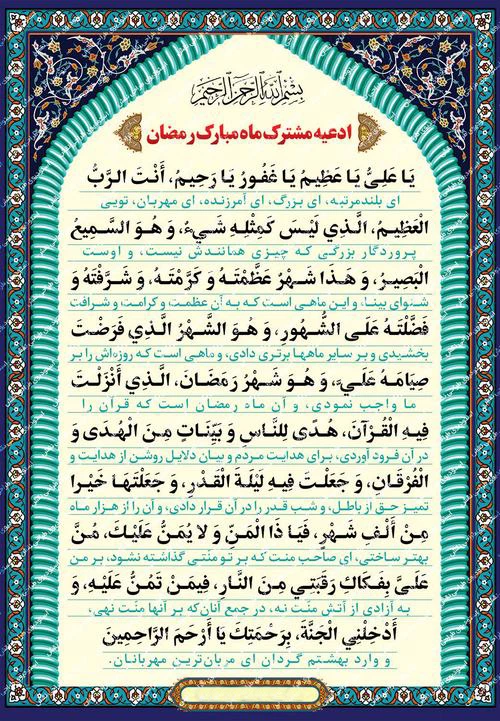 بِسْمِ اللهِ الرَّحْمٰنِ الرَّحِیْمِ
ادعیه مشترک ماه مبارک رمضان
یَا عَلِیُّ یَا عَظِیمُ یَا غَفُورُ یَا رَحِیمُ، أَنْتَ الرَّبُّ
ای بلندمرتبه، ای بزرگ، ای آمرزنده، ای مهربان، تویی
الْعَظِیمُ، الَّذِي لَیْسَ کَمِثْلِهِ شَيْءٌ، وَ هُوَ السَّمِیعُ
پروردگار بزرگی که چیزی همانندش نیست، و اوست
الْبَصِیرُ، وَ هَذَا شَهْرٌ عَظَّمْتَهُ وَ کَرَّمْتَهُ، وَ شَرَّفْتَهُ وَ
شنوای بینا، و این ماهی است که به آن عظمت و کرامت و شرافت
فَضَّلْتَهُ عَلَی الشُّهُورِ، وَ هُوَ الشَّهْرُ الَّذِي فَرَضْتَ
بخشیدی و بر سایر ماهها برتری دادی، و ماهی است که روزه‌اش را بر
صِیَامَهُ عَلَيَّ، وَ هُوَ شَهْرُ رَمَضَانَ، الَّذِي أَنْزَلْتَ
ما واجب نمودی، و آن ماه رمضان است که قرآن را
فِیهِ الْقُرْآنَ، هُدًی لِلنَّاسِ وَ بَیِّنَاتٍ مِنَ الْهُدَی وَ
در آن فرود آوردی، برای هدایت مردم و بیان دلایل روشن از هدایت و
الْفُرْقَانِ، وَ جَعَلْتَ فِیهِ لَیْلَةَ الْقَدْرِ، وَ جَعَلْتَهَا خَیْرا
تمیز حق از باطل، و شب قدر را در آن قرار دادی، و آن را از هزار ماه
مِنْ أَلْفِ شَهْرٍ، فَیَا ذَا الْمَنِّ وَ لا یُمَنُّ عَلَیْكَ، مُنَّ
بهتر ساختی، ای صاحب منت که بر تو منّتی گذاشته نشود، بر من
عَلَيَّ بِفَکَاكِ رَقَبَتِي مِنَ النَّارِ، فِیمَنْ تَمُنُّ عَلَیْهِ، وَ
به آزادی از آتش منّت نه، در جمع آنان‌که بر آنها منّت نهی،
أَدْخِلْنِي الْجَنَّةَ، بِرَحْمَتِكَ یَا أَرْحَمَ الرَّاحِمِینَ
و وارد بهشتم گردان ای مهربان‌ترین مهربانان.